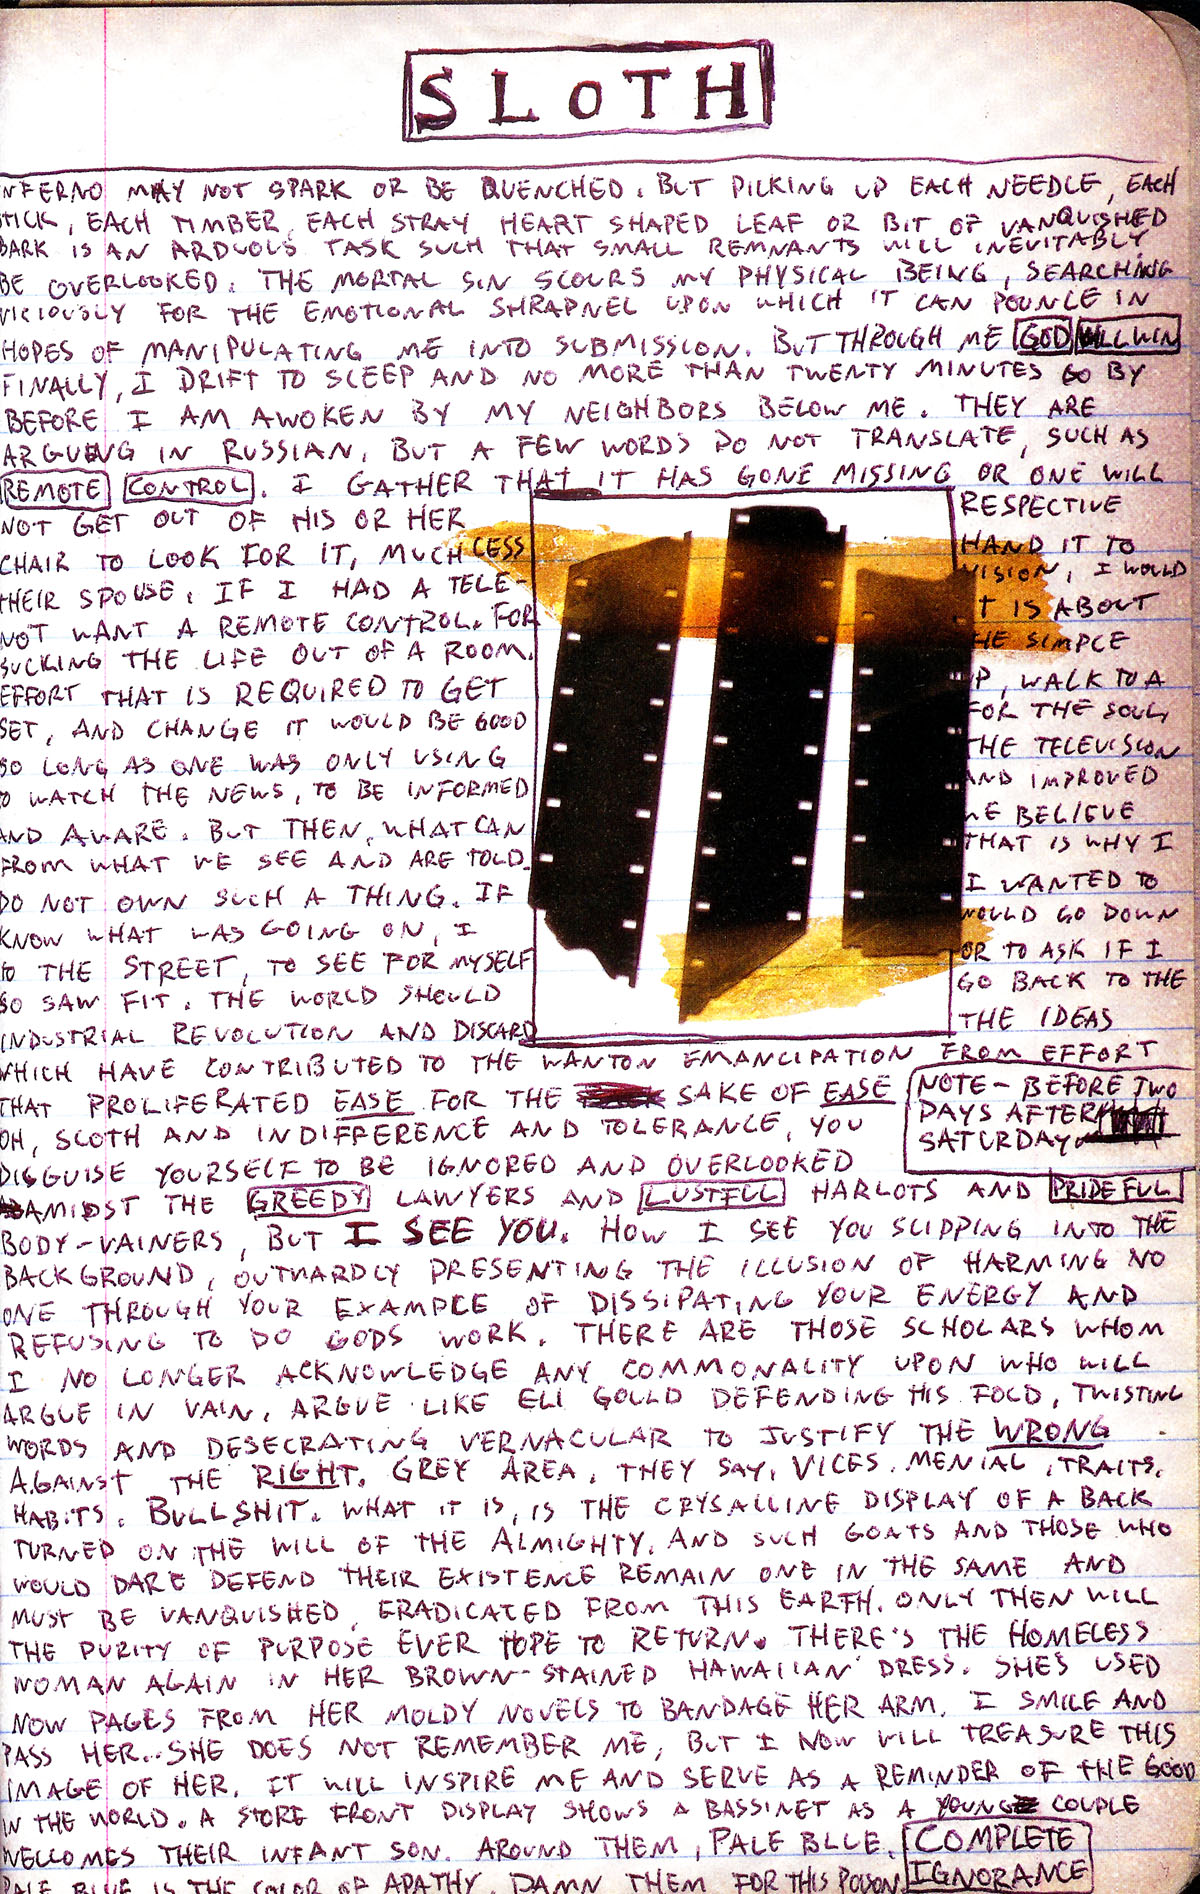 SLOTH
NFERNO MAY NOT SPARK OR BE QUENCHED. BUT PICKING UP EACH NEEDLE, EACH
TICK, EACH TIMBER, EACH STRAY HEART SHAPED LEAF OR BIT OF VANQUISHED
BARK IS AN ARDUOUS TASK SUCH THAT SMALL REMNANTS WILL INEVITABLY
BE OVERLOOKED. THE MORTAL SIN SCOURS MY PHYSICAL BEING, SEARCHING
VICIOUSLY FOR THE EMOTIONAL SHRAPNEL UPON WHICH IT CAN POUNCE IN
HOPES OF MANIPULATING ME INTO SUBMISSION. BUT THROUGH ME GOD WILL WIN
FINALLY, I DRIFT TO SLEEP AND NO MORE THAN TWENTY MINUTES GO BY
BEFORE I AM AWOKEN BY MY NEIGHBORS BELOW ME. THEY ARE
ARGUING IN RUSSIAN, BUT A FEW WORDS DO NOT TRANSLATE, SUCH AS
REMOTE CONTROL. I GATHER THAT IT HAS GONE MISSING OR ONE WILL
NOT GET OUT OF HIS OR HER RESPECTIVE
CHAIR TO LOOK FOR IT, MUCH LESS HAND IT TO
THEIR SPOUSE. IF I HAD A TELE- VISION, I WOULD
NOT WANT A REMOTE CONTROL. FOR IT IS ABOUT
SUCKING THE LIFE OUT OF A ROOM. THE SIMPLE
EFFORT THAT IS REQUIRED TO GET UP, WALK TO A
SET, AND CHANGE IT WOULD BE GOOD FOR THE SOUL,
SO LONG AS ONE WAS ONLY USING THE TELEVISION
O WATCH THE NEWS, TO BE INFORMED AND IMPROVED
AND AWARE. BUT THEN, WHAT CAN WE BELIEVE
FROM WHAT WE SEE AND ARE TOLD. THAT IS WHY I
DO NOT OWN SUCH A THING. IF I WANTED TO
KNOW WHAT WAS GOING ON, I WOULD GO DOWN
TO THE STREET, TO SEE FOR MYSELF OR TO ASK IF I
SO SAW FIT. THE WORLD SHOULD GO BACK TO THE
INDUSTRIAL REVOLUTION AND DISCARD THE IDEAS
WHICH HAVE CONTRIBUTED TO THE WANTON EMANCIPATION FROM EFFORT
THAT PROLIFERATED EASE FOR THE SAKE OF EASE
NOTE - BEFORE TWO
DAYS AFTER
SATURDAY
OH, SLOTH AND INDIFFERENCE AND TOLERANCE, YOU
DISGUISE YOURSELF TO BE IGNORED AND OVERLOOKED
AMIDST THE GREEDY LAWYERS AND LUSTFUL HARLOTS AND PRIDEFUL
BODY-VAINERS, BUT I SEE YOU. HOW I SEE YOU SLIPPING INTO THE
BACKGROUND, OUTWARDLY PRESENTING THE ILLUSION OF HARMING NO
ONE THROUGH YOUR EXAMPLE OF DISSIPATING YOUR ENERGY AND
REFUSING TO DO GODS WORK. THERE ARE THOSE SCHOLARS WHOM
I NO LONGER ACKNOWLEDGE ANY COMMONALITY UPON WHO WILL
ARGUE IN VAIN, ARGUE LIKE ELI GOULD DEFENDING HIS FOLD, TWISTING
WORDS AND DESECRATING VERNACULAR TO JUSTIFY THE WRONG
AGAINST THE RIGHT. GREY AREA, THEY SAY, VICES. MENIAL, TRAITS.
HABITS. BULLSHIT. WHAT IT IS, IS THE CRYSALLINE DISPLAY OF A BACK
TURNED ON THE WILL OF THE ALMIGHTY. AND SUCH GOATS AND THOSE WHO
WOULD DARE DEFEND THEIR EXISTENCE REMAIN ONE IN THE SAME AND
MUST BE VANQUISHED, ERADICATED FROM THIS EARTH. ONLY THEN WILL
THE PURITY OF PURPOSE EVER HOPE TO RETURN. THERE'S THE HOMELESS
WOMAN AGAIN IN HER BROWN-STAINED HAWAIIAN DRESS. SHE'S USED
NOW PAGES FROM HER MOLDY NOVELS TO BANDAGE HER ARM. I SMILE AND
PASS HER.. SHE DOES NOT REMEMBER ME, BUT I NOW WILL TREASURE THIS
IMAGE OF HER. IT WILL INSPIRE ME AND SERVE AS A REMINDER OF THE GOOD
IN THE WORLD. A STORE FRONT DISPLAY SHOWS A BASSINET AS A YOUNG COUPLE
WELCOMES THEIR INFANT SON. AROUND THEM, PALE BLUE. COMPLETE
PALE BLUE IS THE COLOR OF APATHY. DAMN THEM FOR THIS POISON IGNORANCE